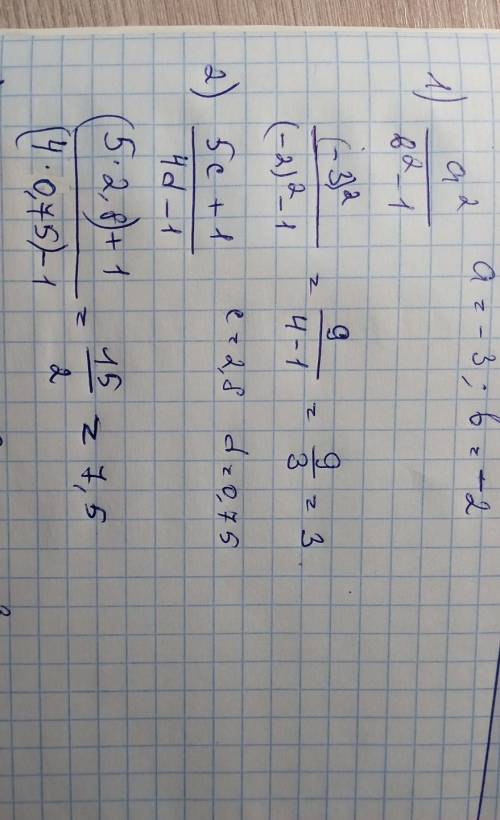 1) a² / (в² - 1) a = -3; b = -2
(-3)² / ((-2)² - 1) = 9 / (4 - 1) = 9 / 3 = 3
2) (5c + 1) / (4d - 1) c = 2,8 d = 0,75
((5 · 2,8) + 1) / ((4 · 0,75) - 1) = 15 / 2 = 7,5